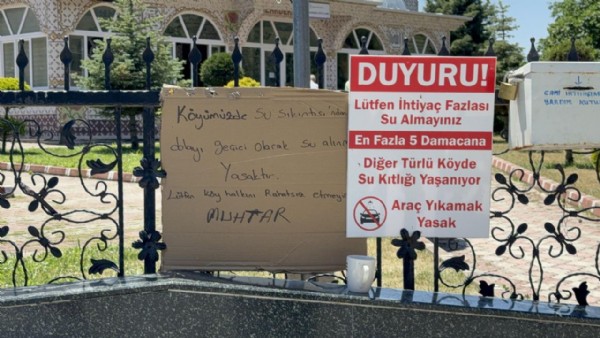 Köyümüzde su sıkıntısı
dolayı geçici olarak su almak
Yasaktır.
Lütfen köy halkını Rahatsız etmeyin
MUHTAR
DUYURU!
Lütfen İhtiyaç Fazlası
Su Almayınız
En Fazla 5 Damacana
Diğer Türlü Köyde
Su Kıtlığı Yaşanıyor
Araç Yıkamak
Yasak